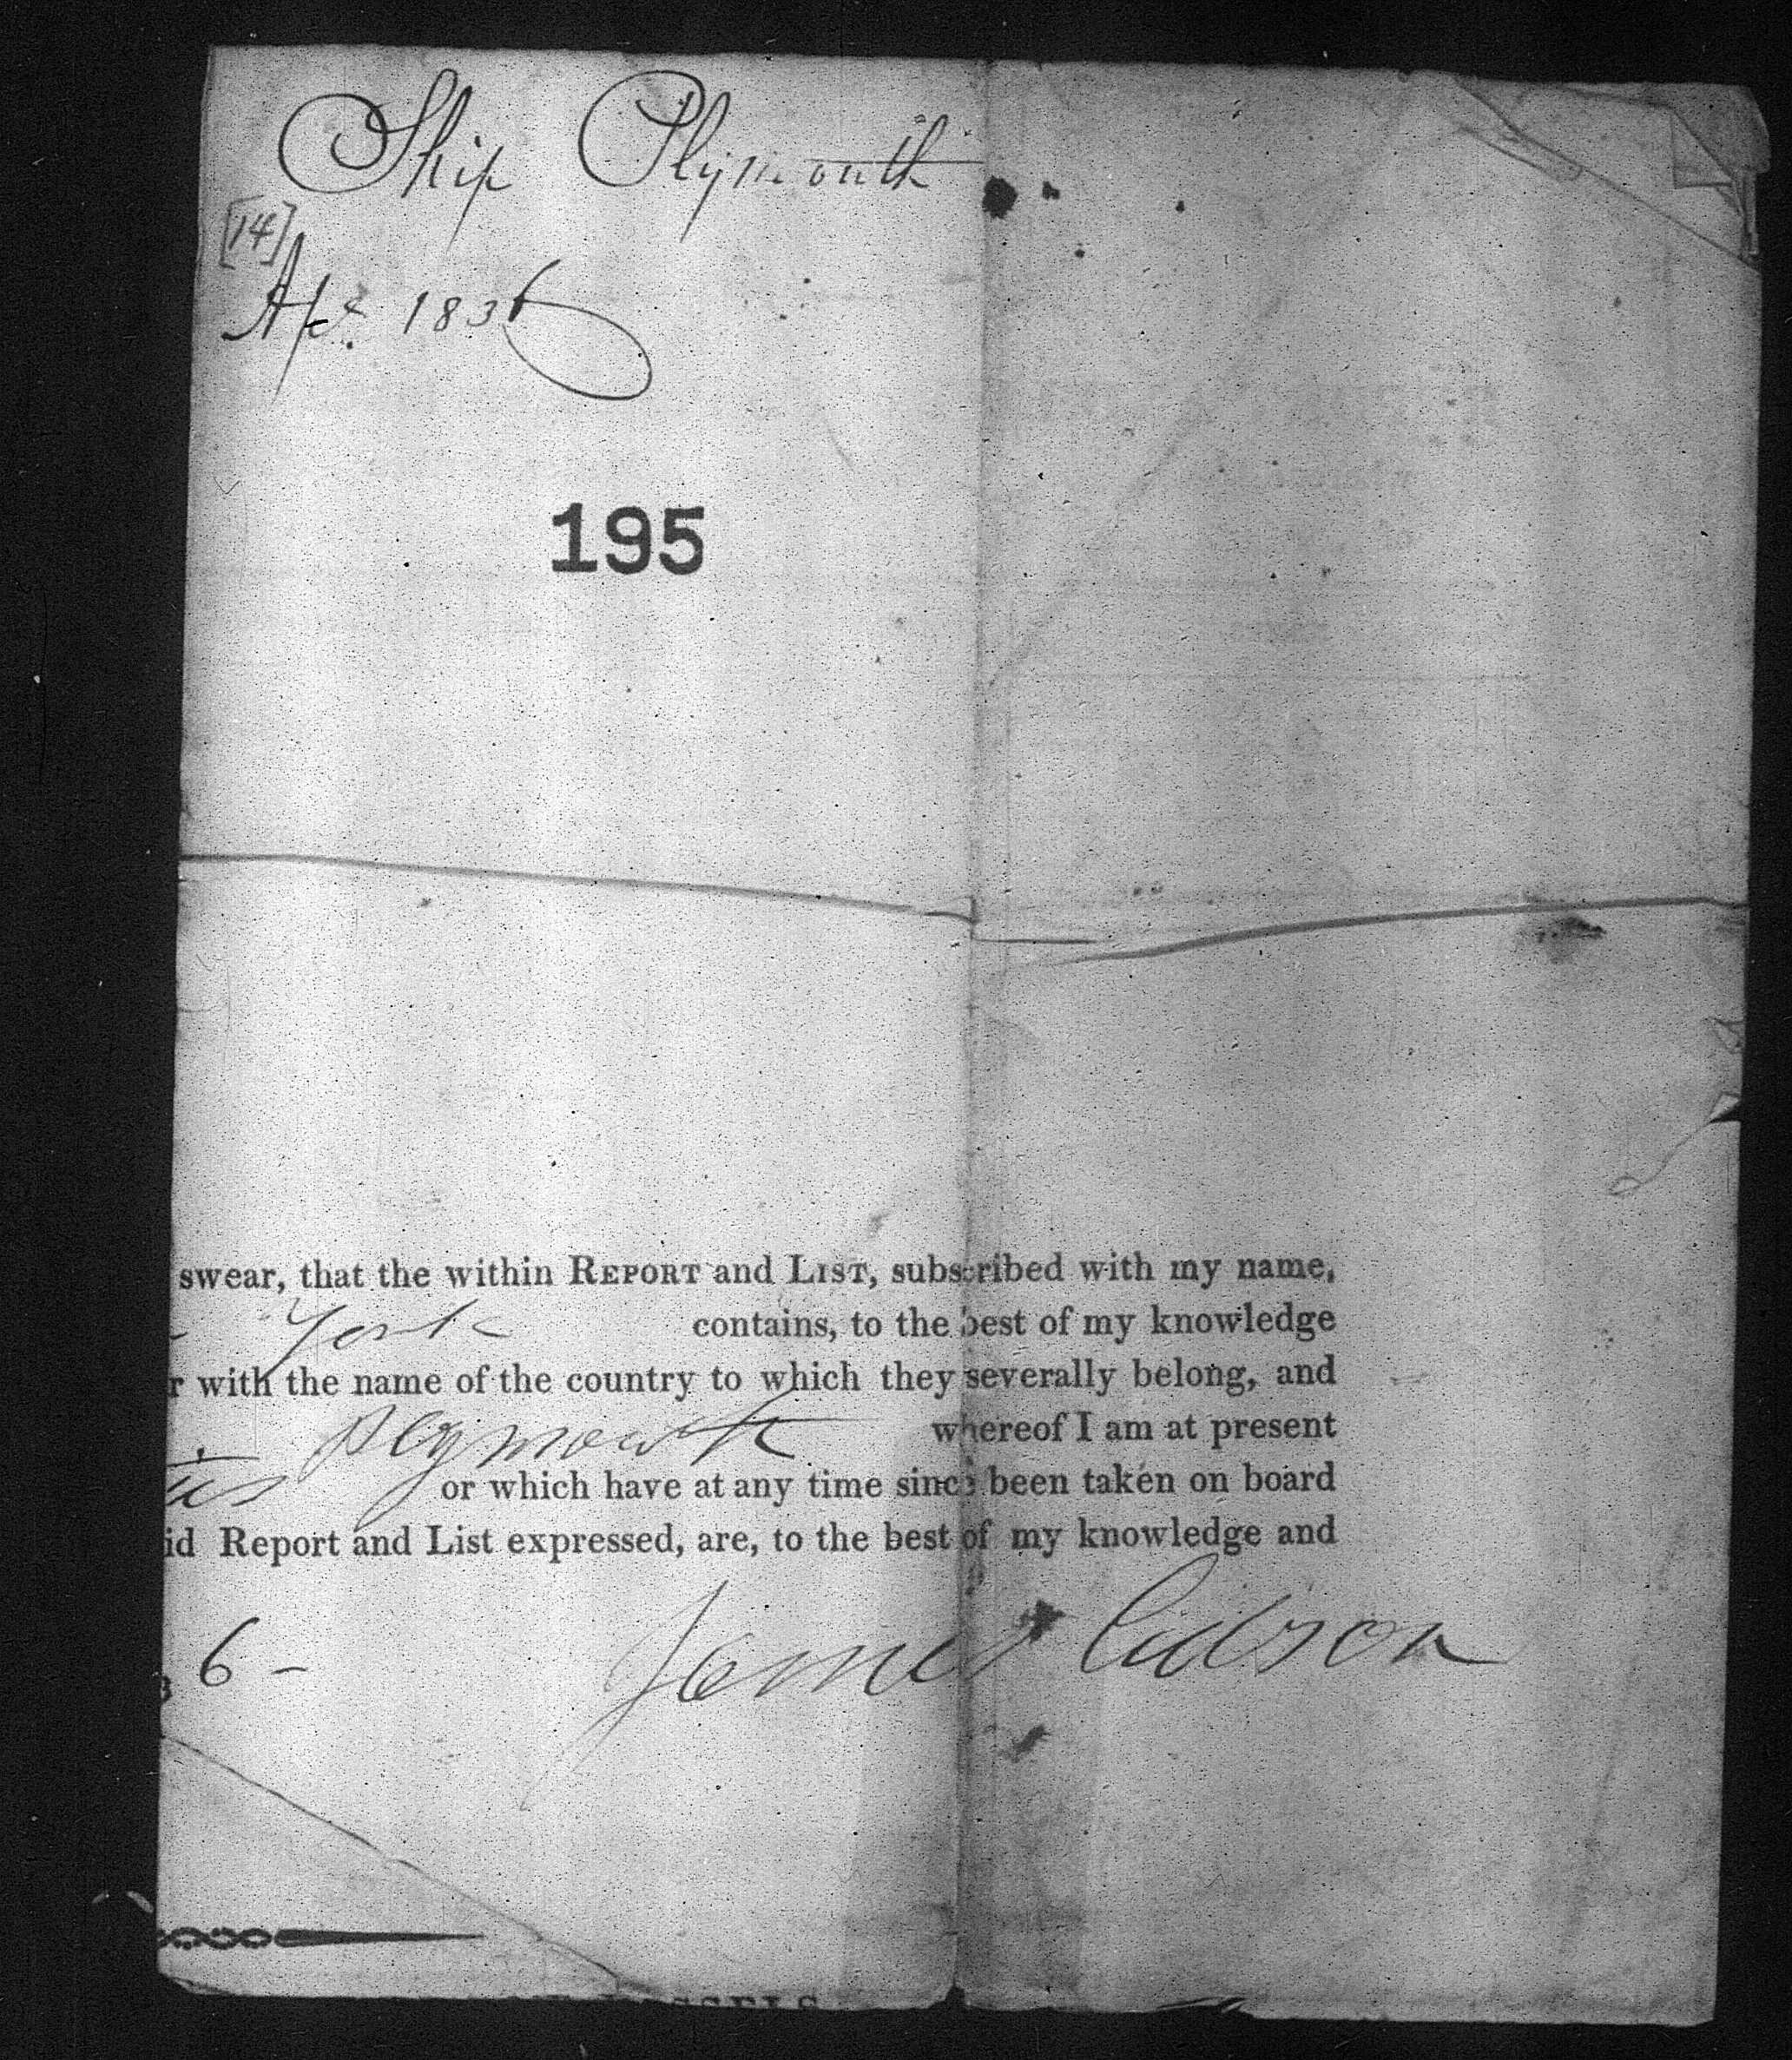 Ship Plymouth
[14]
Apl. 1836
195
swear, that the within REPORT and LIST, subscribed with my name,
York contains, to the best of my knowledge
r with the name of the country to which they severally belong, and
Plymouth whereof I am at present
or which have at any time since been taken on board
id Report and List expressed, are, to the best of my knowledge and
3 6 -
James